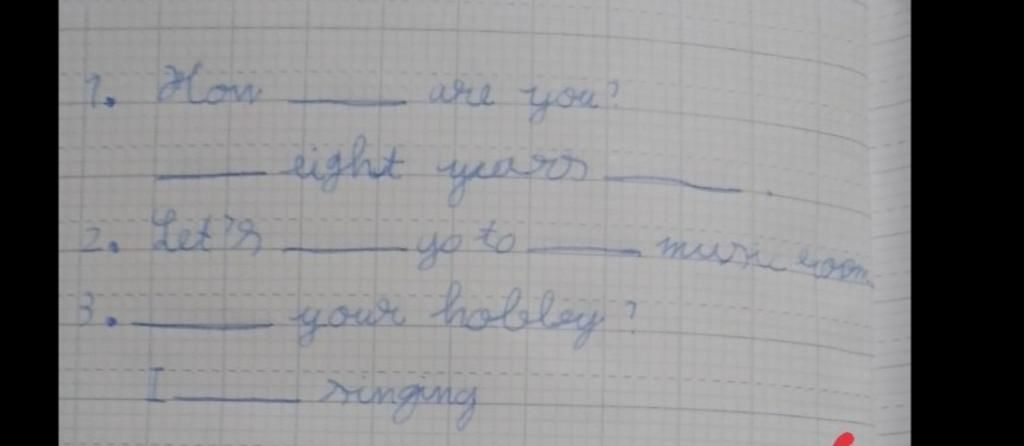 1. How ____ are you?
____ eight years ____.
2. Let's ____ go to ____ music room.
3. ____ your hobbey?
I ____ singing